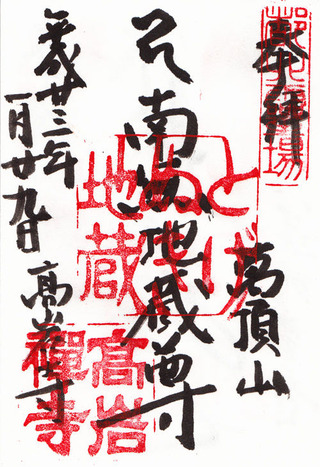 奉拝
萬頂山
南無地蔵尊
平成廿三年
一月廿九日
高岩寺
とげぬき地蔵
高岩禪寺